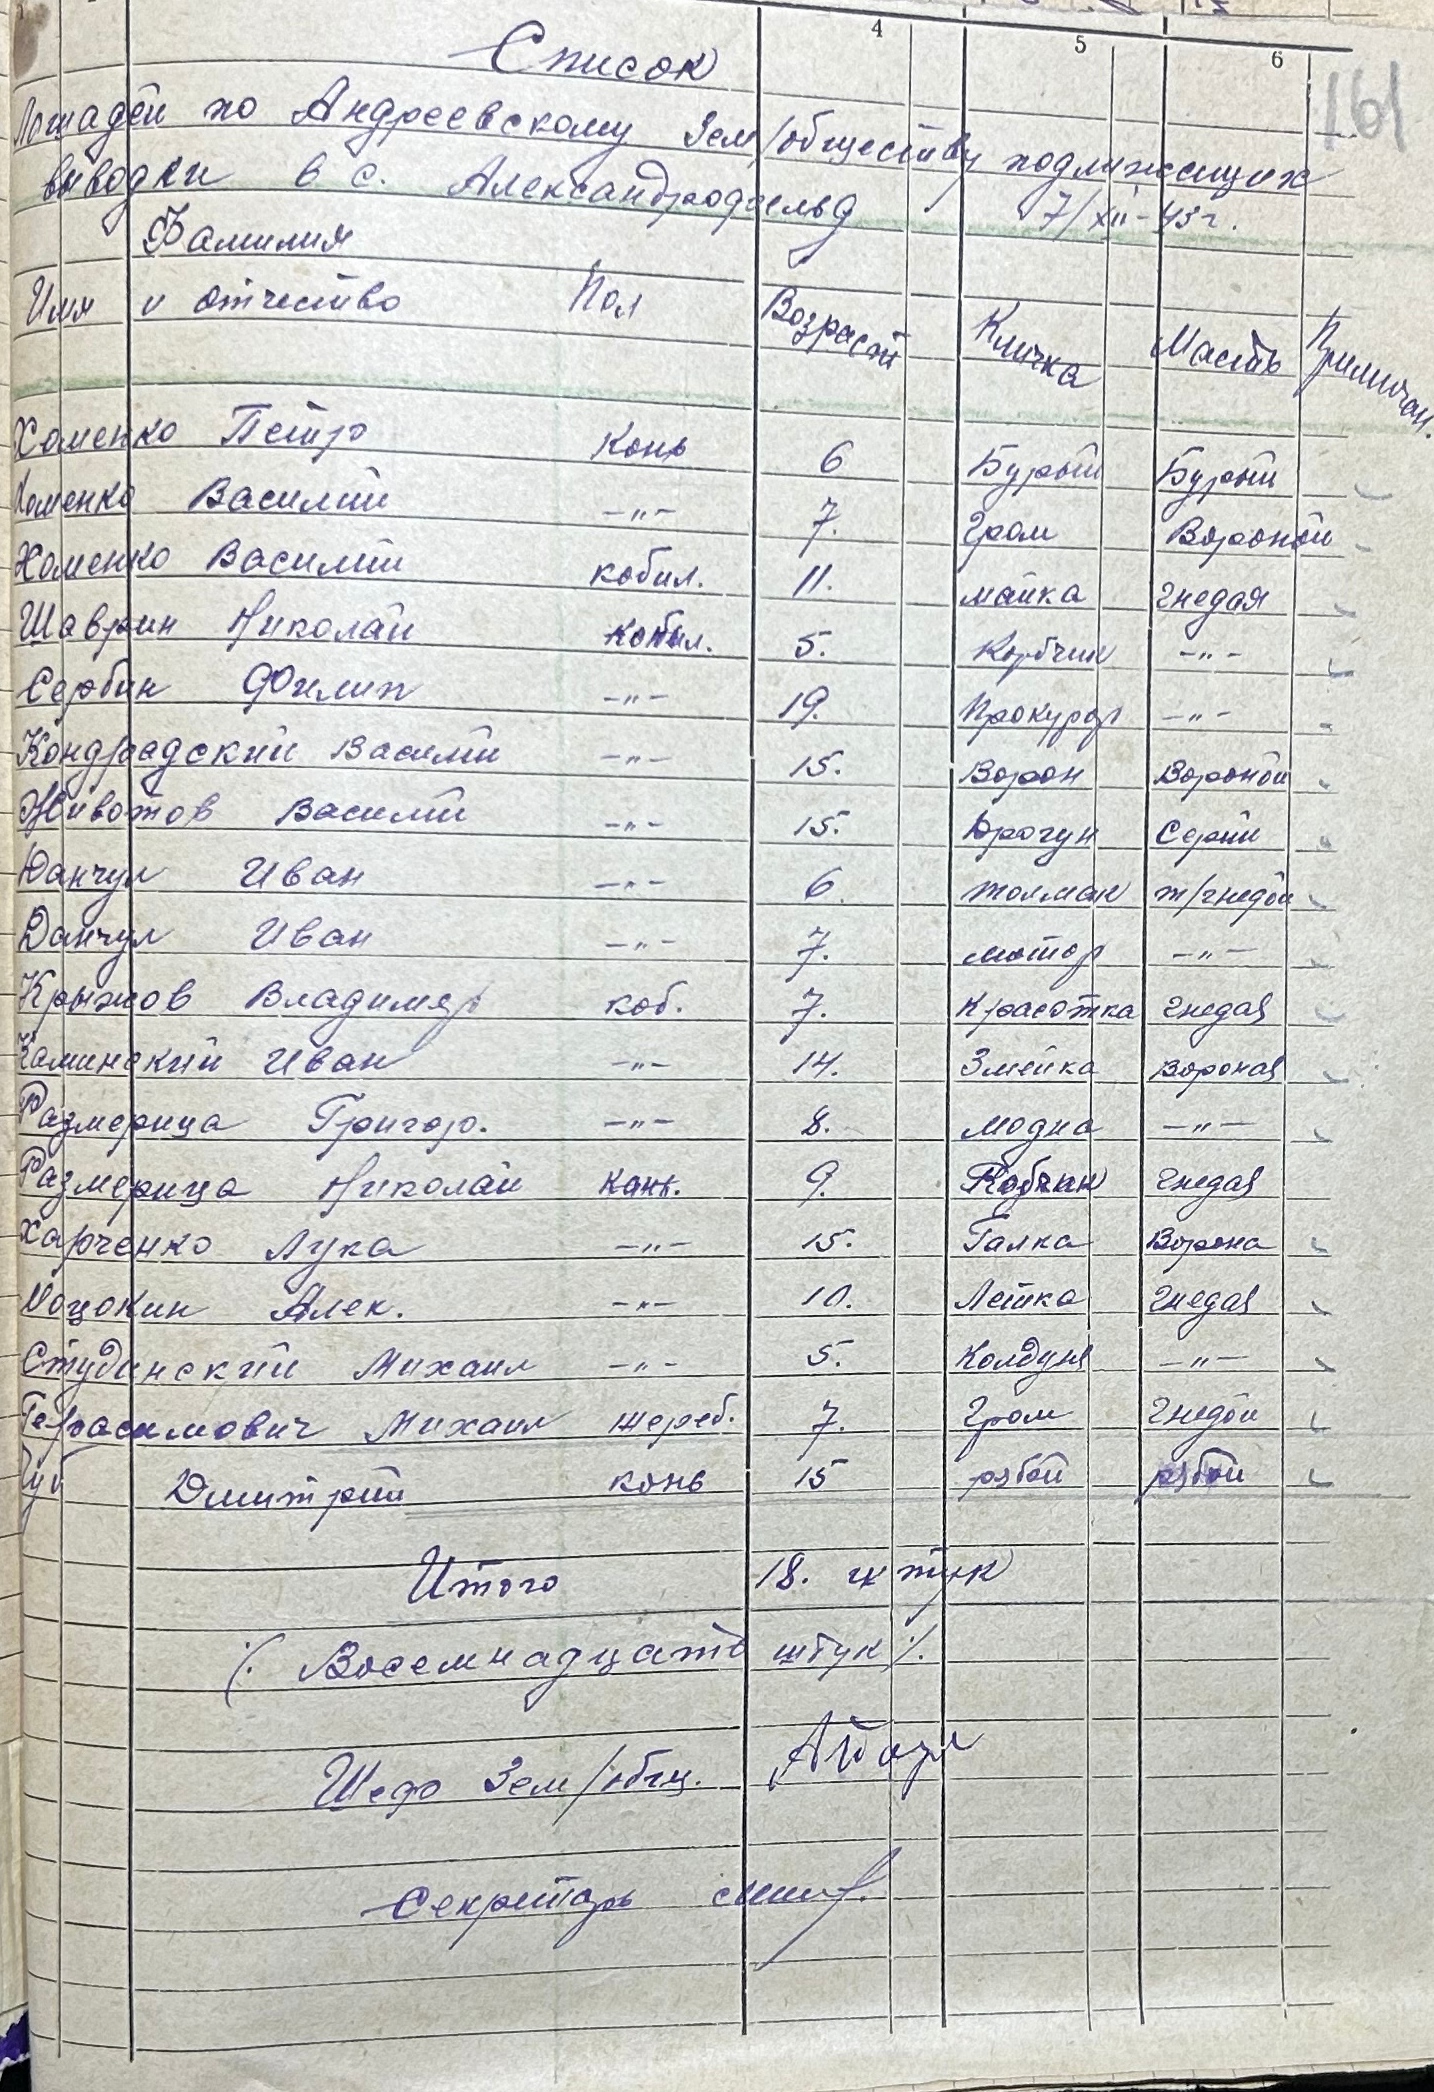 4 5 6
161
Список
Лошадей по Андреевскому Зем/обществу подлижащих
выводки в с. Александрофельд 7/XII-43 г.
Фамилия
Имя и отчество Пол Возраст Кличка Масть Примичан.
Хоменко Петр Конь 6 Бурый Бурый
Хоменко Василий -"- 7. Гром Вороной
Хоменко Василий кобил. 11. майка гнедая
Шаврин Николай кобыл. 5. Кобчик -"-
Сербин Филип -"- 19. Прокурор -"-
Кондрадский Василий -"- 15. Ворон Вороной
Животов Василий -"- 15. Серий
Данчул Иван -"- 6 толмак т/гнедой
Данчул Иван -"- 7. мотор -"-
Крыжов Владимер коб. 7. Красотка гнедая
Каминский Иван -"- 14. Змейка вороная
Размерица Григор. -"- 8. модна -"-
Размерица Николай Конь. 9. Кобчик гнедая
Харченко Лука -"- 15. Галка Ворона
Алек. -"- 10. Летка гнедая
Студинский Михаил -"- 5. Колдуня -"-
Герасимович Михаил жереб. 7. Гром Гнедой
Чуб Дмитрий конь 15 рябой рябой
Итого 18. штук
/. Восемнадцать штук /.
Шеф Зем/общ.
Секретарь